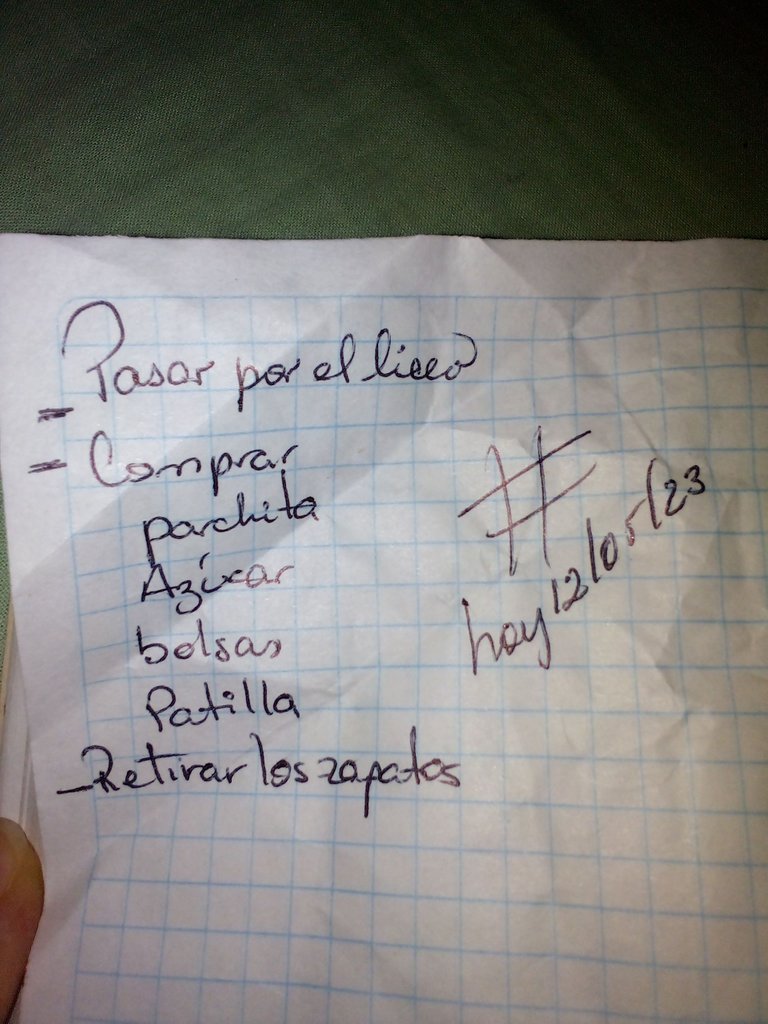 Pasar por el liceo
= Comprar
parchita
Azúcar
bolsas
Patilla
- Retirar los zapatos
#
hoy 12/05/23